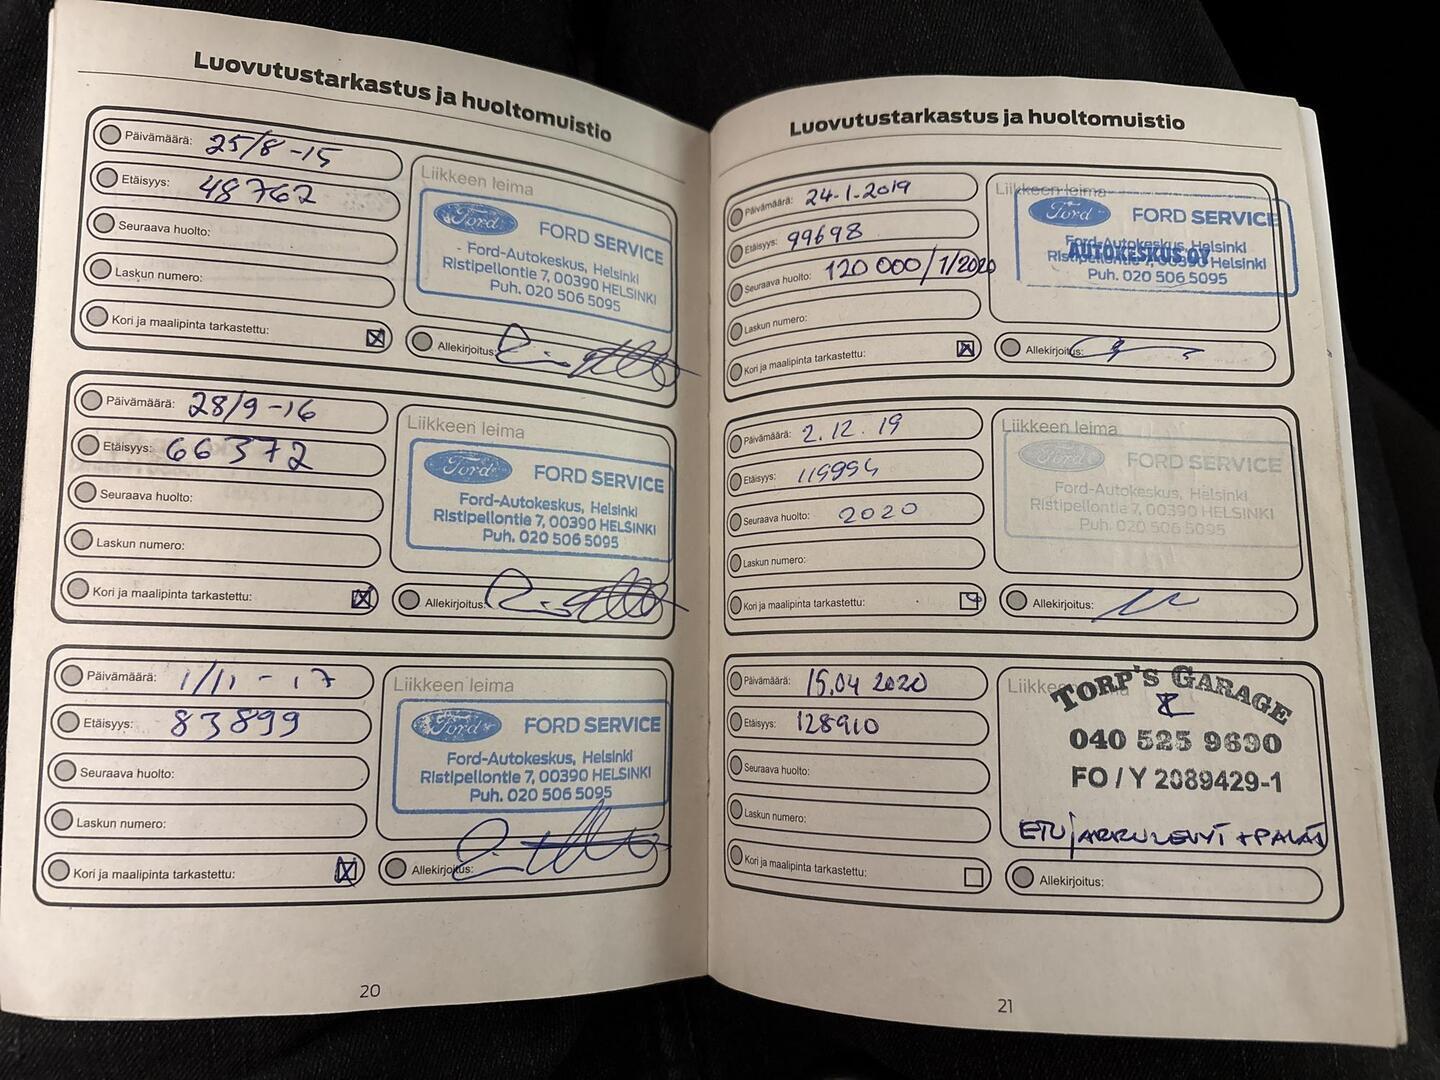 Luovutustarkastus ja huoltomuistio
Päivämäärä: 25/8 -15
Etäisyys: 48762
Seuraava huolto:
Laskun numero:
Kori ja maalipinta tarkastettu:
Liikkeen leima
Ford FORD SERVICE
Ford-Autokeskus, Helsinki
Ristipellontie 7, 00390 HELSINKI
Puh. 020 506 5095
Allekirjoitus:
Päivämäärä: 28/9 -16
Etäisyys: 66372
Seuraava huolto:
Laskun numero:
Kori ja maalipinta tarkastettu:
Liikkeen leima
Ford FORD SERVICE
Ford-Autokeskus, Helsinki
Ristipellontie 7, 00390 HELSINKI
Puh. 020 506 5095
Allekirjoitus:
Päivämäärä: 1/11 - 17
Etäisyys: 83899
Seuraava huolto:
Laskun numero:
Kori ja maalipinta tarkastettu:
Liikkeen leima
Ford FORD SERVICE
Ford-Autokeskus, Helsinki
Ristipellontie 7, 00390 HELSINKI
Puh. 020 506 5095
Allekirjoitus:
20
Luovutustarkastus ja huoltomuistio
Päivämäärä: 24.1.2019
Etäisyys: 99698
Seuraava huolto: 120 000/1/2020
Laskun numero:
Kori ja maalipinta tarkastettu:
Liikkeen leima
Ford FORD SERVICE
Ford-Autokeskus, Helsinki
AUTOKESKUS OY
Ristipellontie 7, 00390 Helsinki
Puh. 020 506 5095
Allekirjoitus:
Päivämäärä: 2.12.19
Etäisyys:
Seuraava huolto: 2020
Laskun numero:
Kori ja maalipinta tarkastettu:
Liikkeen leima
Ford FORD SERVICE
Ford-Autokeskus, Helsinki
Ristipellontie 7, 00390 HELSINKI
Puh. 020 506 5095
Allekirjoitus:
Päivämäärä: 15.04 2020
Etäisyys: 128910
Seuraava huolto:
Laskun numero:
Kori ja maalipinta tarkastettu:
Liikkeen leima
TORP'S GARAGE
040 525 9690
FO / Y 2089429-1
ETUJARRULEVYT + PALAT
Allekirjoitus:
21